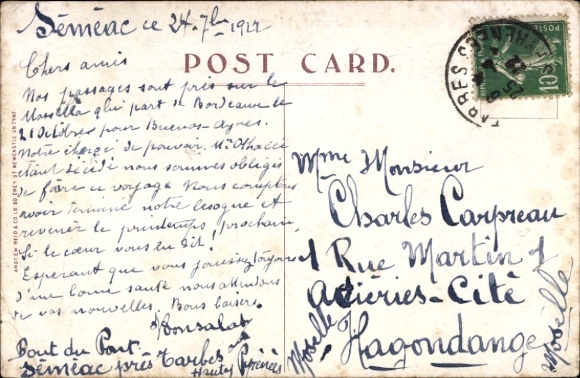 Séméac ce 24-7bre 1922
POST CARD.
Chers amis
Nos passages sont pris sur le
Massilla qui part de Bordeaux le
21 Octobre pour Buenos-Ayres.
Notre chargé de pouvoir. Mr
étant décédé nous sommes obligés
de faire ce voyage Nous comptons
avoir terminé notre besogne et
revenir le printemps prochain,
Si le cœur vous en dit.
Espérant que vous jouissez toujours
d'une bonne santé nous attendons
de vos nouvelles. Bons baisers.
Pont du Pont
Séméac près Tarbes Hautes Pyrénées
Mme Monsieur
Charles Carpreau
1 Rue Martin 1
Aciéries-Cité
Hagondange
Moselle
Moselle
TARBES
PYRENEES
POSTES
10c